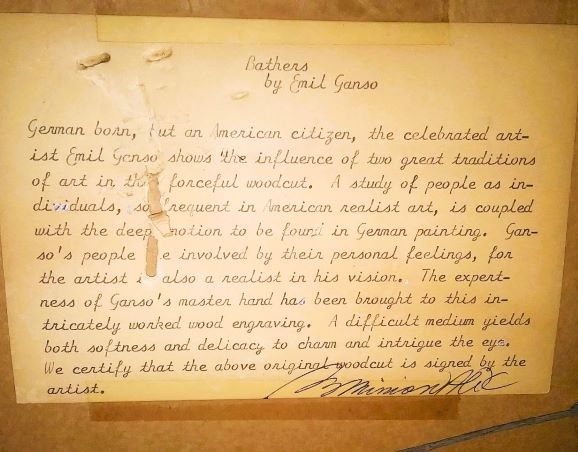 Bathers
by Emil Ganso
German born, but an American citizen, the celebrated art-
ist Emil Ganso shows the influence of two great traditions
of art in this forceful woodcut. A study of people as in-
dividuals, so frequent in American realist art, is coupled
with the deep emotion to be found in German painting. Gan-
so's people are involved by their personal feelings, for
the artist is also a realist in his vision. The expert-
ness of Ganso's master hand has been brought to this in-
tricately worked wood engraving. A difficult medium yields
both softness and delicacy to charm and intrigue the eye.
We certify that the above original woodcut is signed by the
artist.